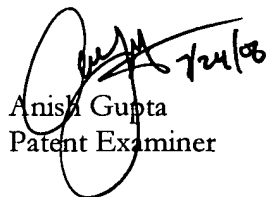 7/24/08
Anish Gupta
Patent Examiner